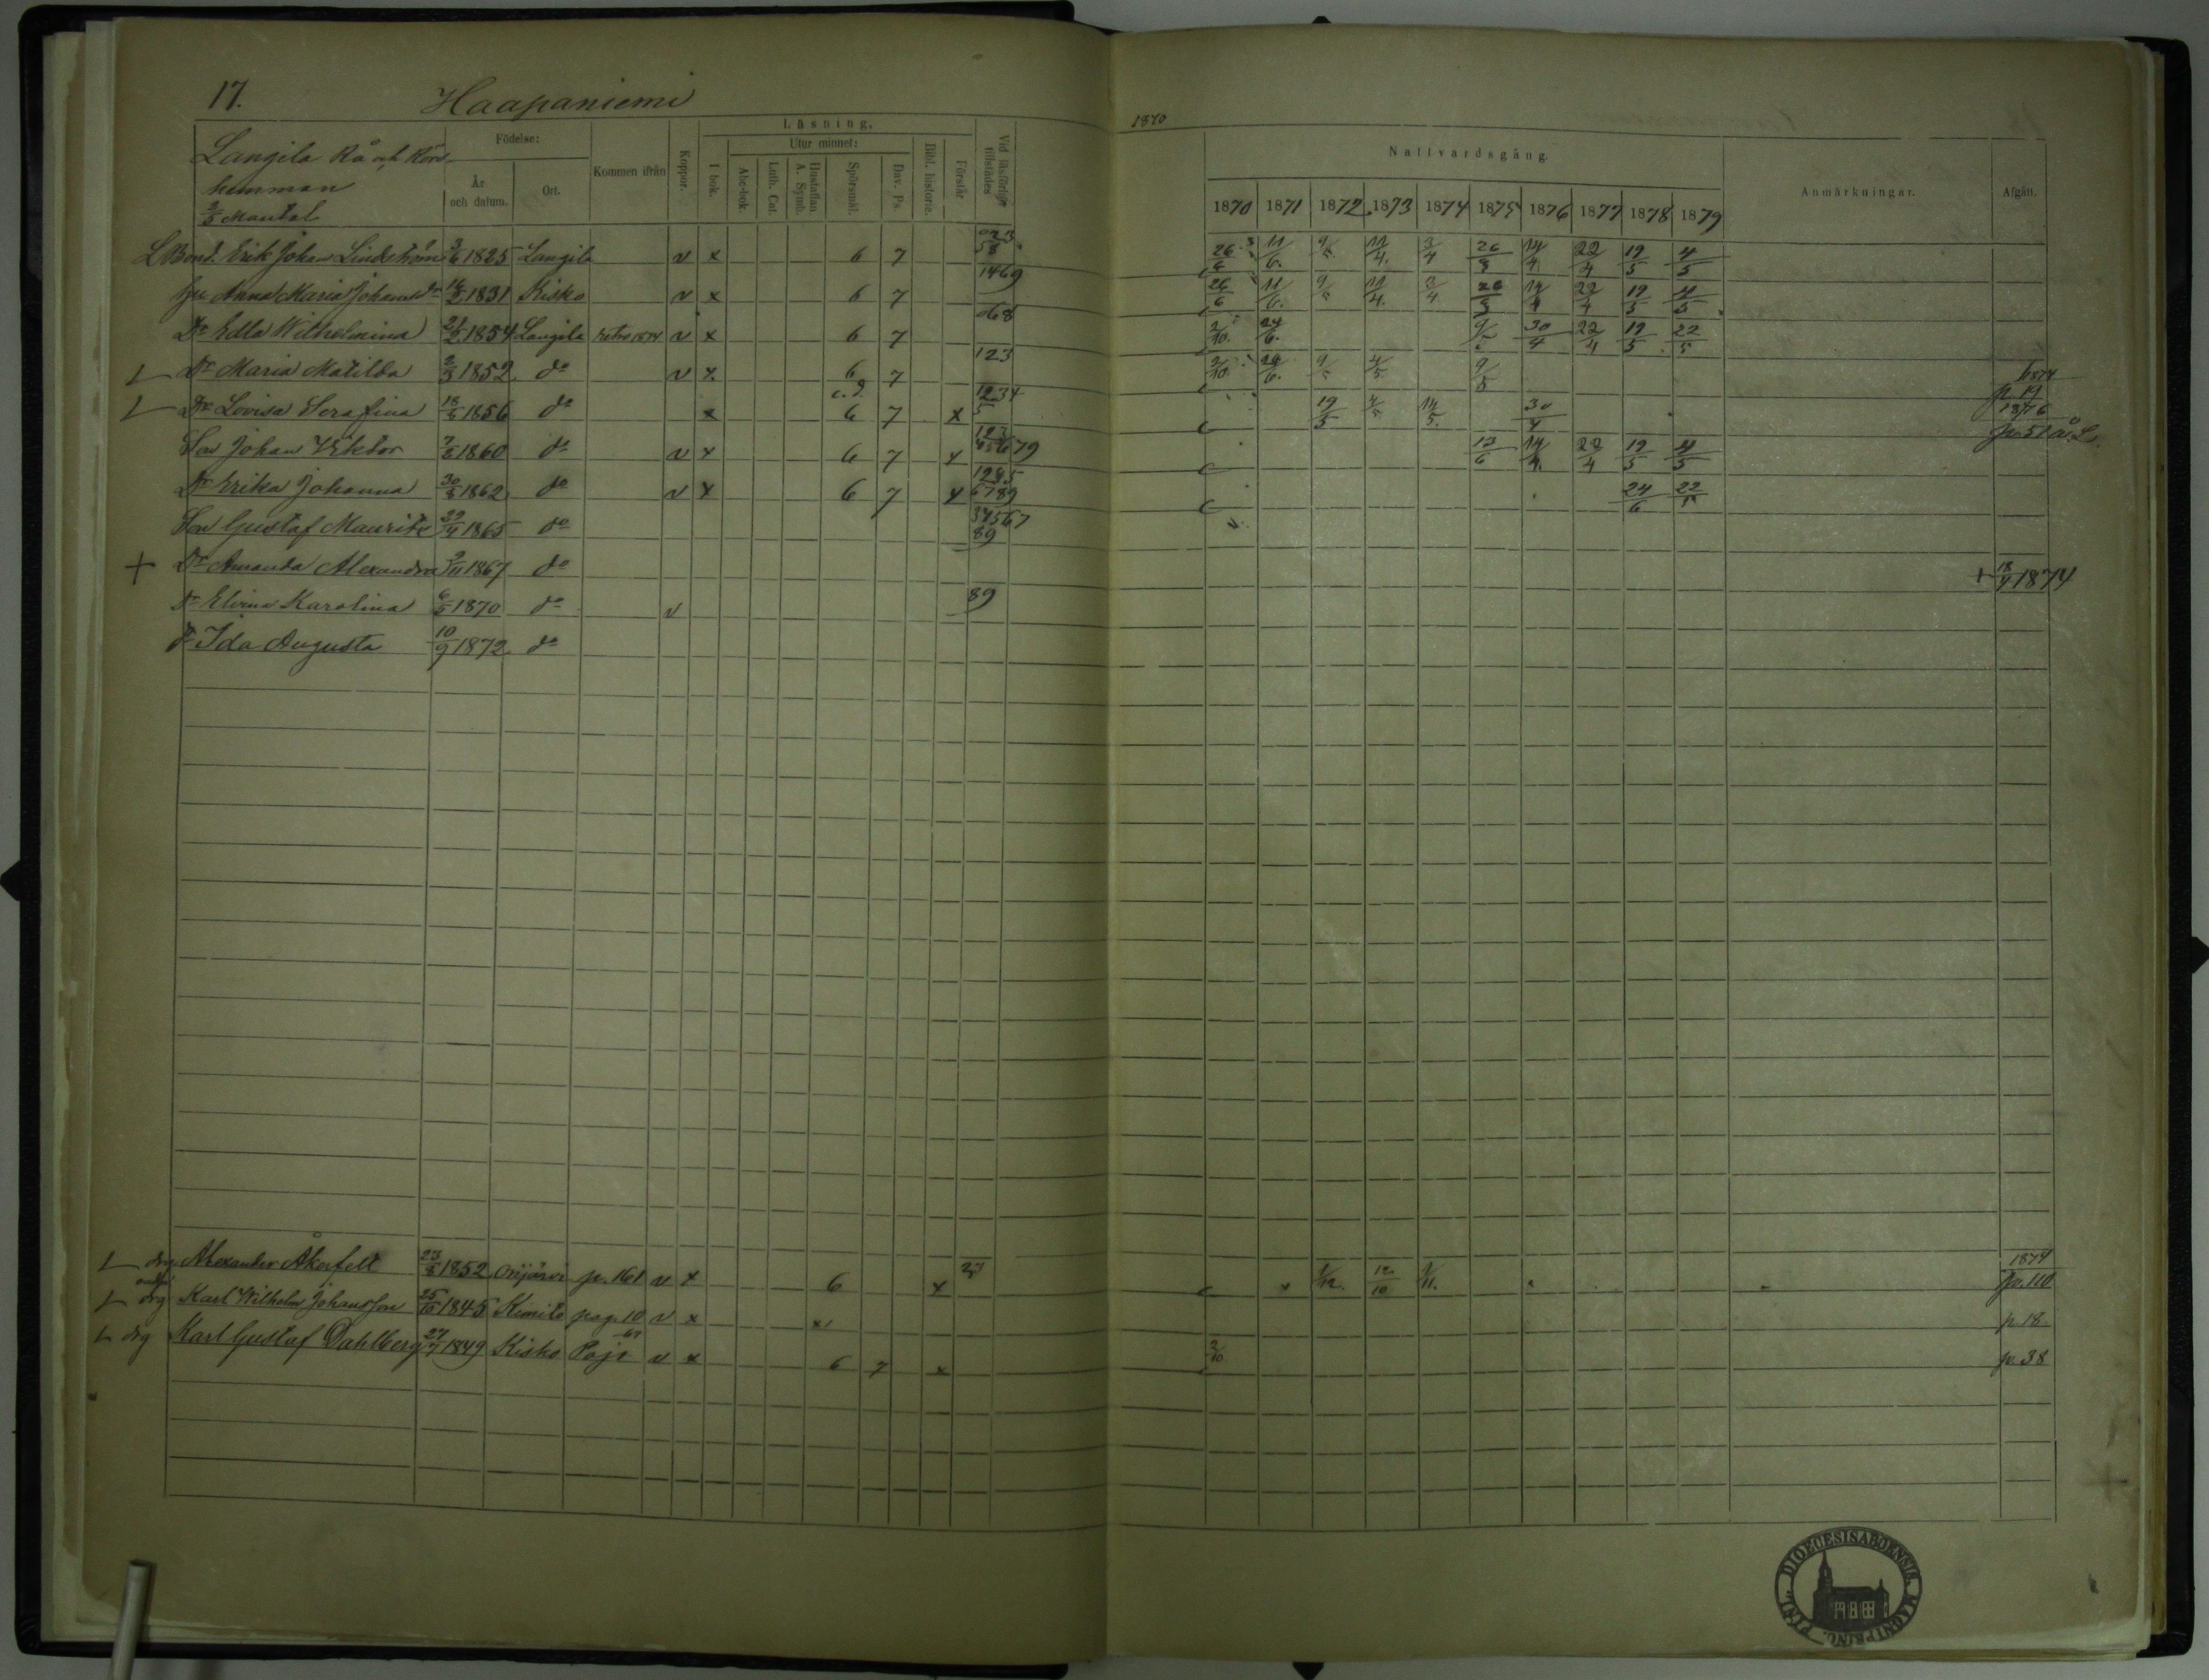 17. Haapaniemi
Langila Rå och Rörs
hemman
2/3 Mantal
Födelse:
År och datum.
Ort.
Kommen ifrån
Koppor.
Läsning.
I bok.
Utur minnet:
Abc-bok.
Luth. Cat.
Hustaflan A. Symb.
Spörsmål.
Dav. Ps.
Bibl. historie.
Förstår
Vid läsförhör tillstädes
1870
Nattvardsgång.
1870 1871 1872 1873 1874 1875 1876 1877 1878 1879
Anmärkningar.
Afgått.
Bond. Erik Johan Lindström 3/6 1825 Langila v x 6 7 58 26/6 11/6 9/5 11/4 3/4 14/4 22/4 19/5 4/5
Hu Anna Maria Johansdr 1831 Kisko v x 6 7 1469 26/6 11/6 9/5 11/4 3/4 14/4 22/4 19/5 4/5
Dr Edla Wilhelmina 1854 Langila retro 1874 v x 6 7 068 2/10 24/6 9/5 30/4 22/4 19/5 22/5
L Dr Maria Matilda 1852 do v x 6 7 123 2/10 24/6 9/5 4/5 9/5 1874
L Dr Lovisa Serafina 18/8 1856 do x 6 7 x 1234 5 19/5 4/5 14/5 30/4 1876 p. 51
Son Johan Viktor 1860 do v x 6 7 x 14/4 22/4 19/5 4/5
Dr Erika Johanna 30/8 1862 do v x 6 7 x 6789 24/6 22/5
Son Gustaf Mauritz 1865 do 34567 89
+ Dr Amanda Alexandra 1867 do + 18/4 1874
Dr Elvina Karolina 6/5 1870 do v 89
Dr Ida Augusta 10/9 1872 do
L drg Alexander Åkerfelt 23/8 1852 Orijärvi p. 161 v x 6 x 1/12 12/10 1/11 1874 p. 110
L drg Karl Wilhelm Johansson 25/10 1845 Kimito pag. 10 v x p. 18
L drg Karl Gustaf Dahlberg 27/7 1849 Kisko Pojo v x 6 7 x 2/10 p. 38
DIOECESIS ABOENSIS MAGNI PRINC. FINL.